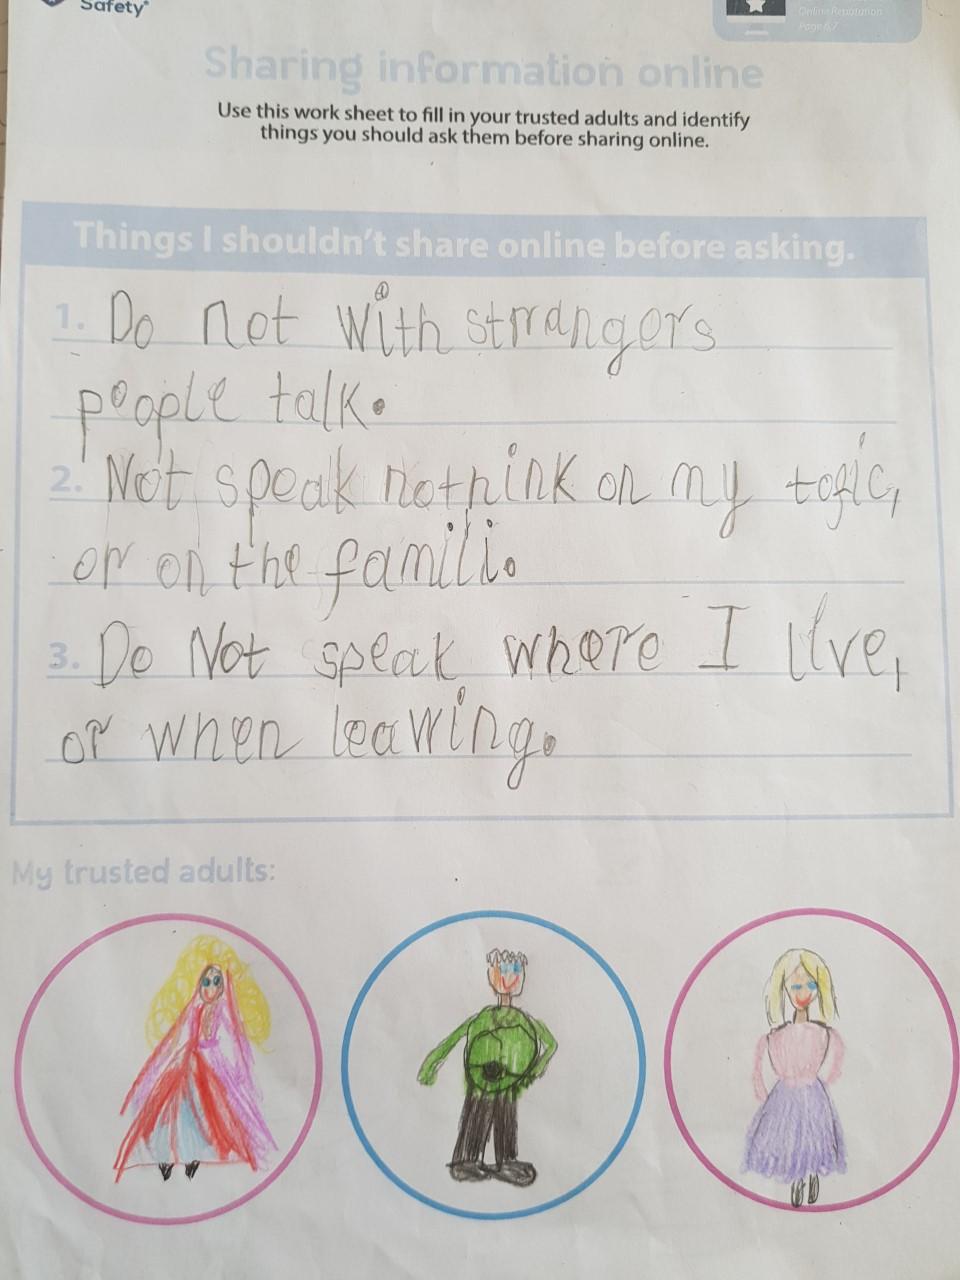 Safety
Online Reputation
Page 6,7
Sharing information online
Use this work sheet to fill in your trusted adults and identify
things you should ask them before sharing online.
Things I shouldn't share online before asking.
1. Do not with strrangers
people talk.
2. Not speak nothink on my
or on the famili.
3. Do Not speak where I live,
or when leawing.
My trusted adults: